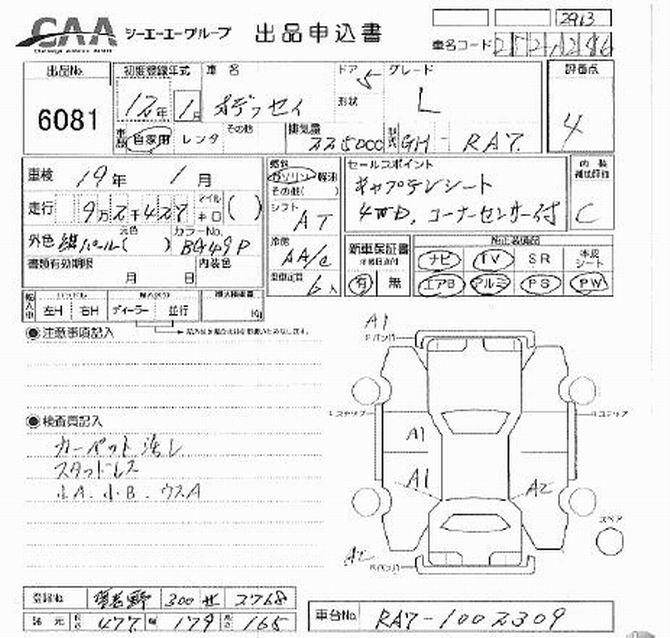 CAA シーエーエーグループ 出品申込書
2913
車名コード 2521286
出品No. 初度登録年式 車名 ドア 5 グレード 評価点
6081 12年 1月 オデッセイ 形状 L 4
自家用 レンタ その他 排気量 2250cc 型式 GH-RA7
車検 19年 1月 燃料 ガソリン 軽油 その他( ) セールスポイント 内装補助評価
走行 9万2千427 マイル キロ ( ) シフト AT キャプテンシート C
4WD、コーナーセンサー付
外色 パール( ) 元色 カラーNo. 冷房 AA/C 新車保証書 純正装備品
書類有効期限 月 日 内装色 乗車定員 6人 有 無 ナビ TV SR 本皮シート
エアB アルミ PS PW
輸入車 左H 右H ディーラー 並行
注意事項記入
検査員記入
カーペット汚レ
スタッドレス
小A、小B、ウスA
A1 Fバンパ
Lステップ Rステップ
A1
A1 A2
スペア
A2 Rバンパ
登録No. 300 せ 2768
諸元 長さ 477 幅 179 高さ 165 車台No. RA7-1002309